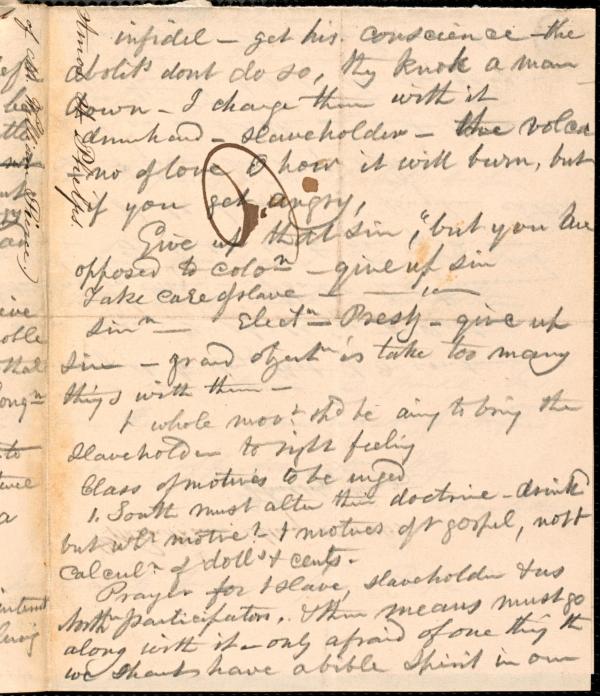 infidel – get his conscience – the
abolitˢ dont do so, they knock a man
down – I charge them with it
drunkard – slaveholder – the volca
-no of love & how it will burn, but
if you get angry,
Give up that sin, "but you are
opposed to coloⁿ – give up sin
Take care of slave –
sinⁿ – Electⁿ – Presby – give up
sin – grand objectⁿ is take too many
things with them –
t whole movᵗ shd be aimg to bring the
slaveholder to right feeling
Class of motives to be urged
1. South must alter their doctrine –
but wht motive? – t motives of t gospel, not t
calculⁿ of dollˢ & cents. –
Prayer for t slave, slaveholder & us
Northⁿ participators. & then means must go
along with it – only afraid of one thing th
we should have a bible spirit in our
Amos A. Phelps.
of